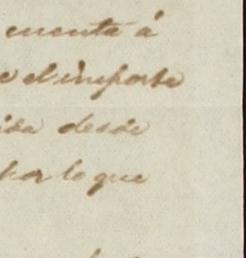 cuenta á
e el importe
ida desde
por lo que